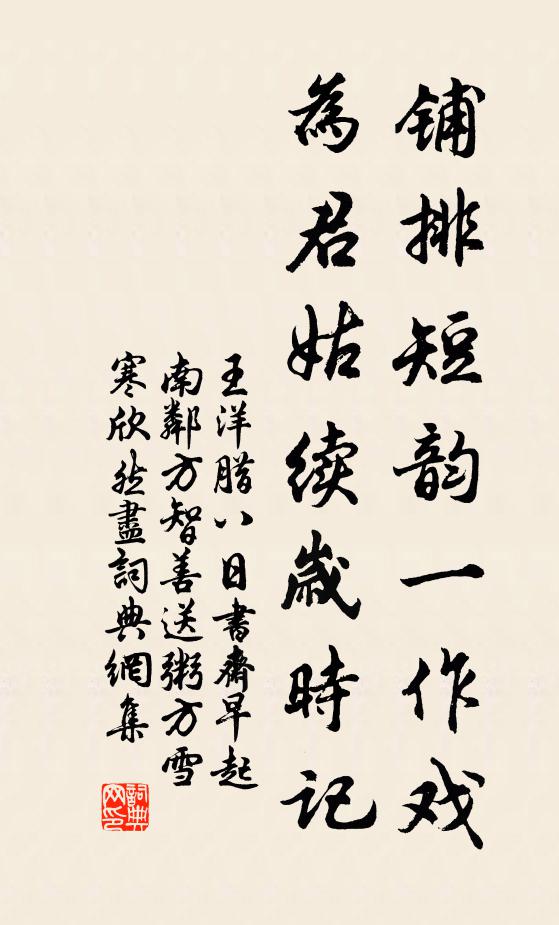 铺排短韵一作戏
為君姑续歳時记
王洋腊八日書齋早起
南鄰方智善送粥方雪
寒欣然盡詞典網集
詞典
网印